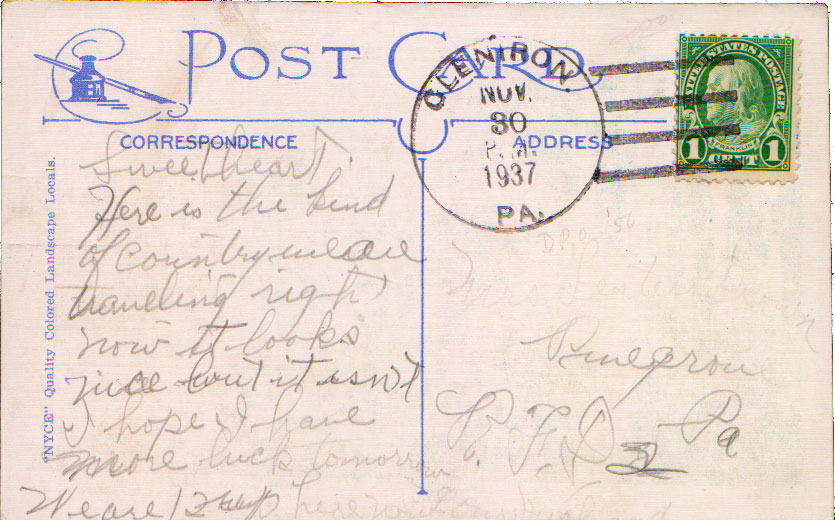 POST CARD
GLEN IRON.
NOV.
30
P.M.
1937
PA.
UNITED STATES POSTAGE
FRANKLIN
1 CENT 1
CORRESPONDENCE
ADDRESS
"NYCE" Quality Colored Landscape Locals.
Sweetheart.
Here is the kind
of country we are
traveling right
now it looks
nice but it isn't
I hope I have
more luck tomorrow
We are here
D.P.O. '56
Pinegrove
R. F. D. 2 Pa